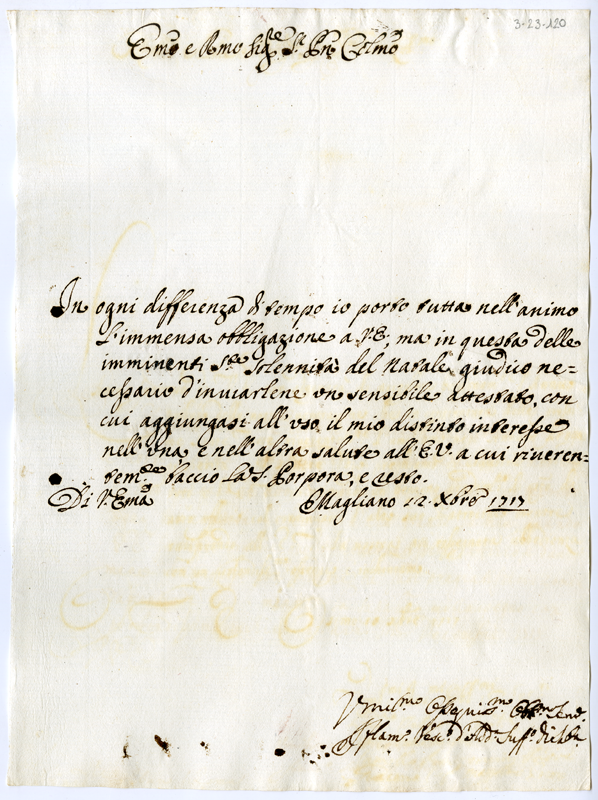 3-23-120
Emo e Rmo Sige Sr Pne Colmo
In ogni differenza di tempo io porto tutta nell'animo
l'immensa obbligazione a V.E, ma in questa delle
imminenti Ste Solennità del Natale, giudico ne=
cessario d'inviarlene un sensibile attestato, con
cui aggiungasi all'uso il mio distinto interesse
nell'una, e nell'altra salute all'E.V. a cui riveren=
temte baccio la S. Porpora, e resto.
Di V. Ema Magliano 12. Xbre 1717
Umilmo